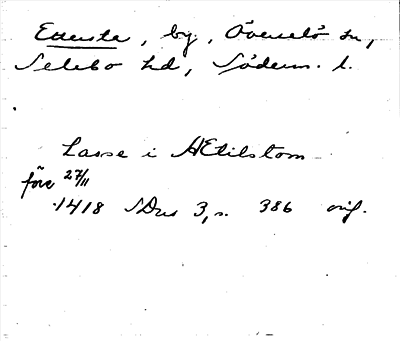 Ettersta, by, Överselö sn,
Selebo hd, Söderm. l.
Lasse i AEtilstom
före 27/11
1418 SDns 3, s. 386 orig.